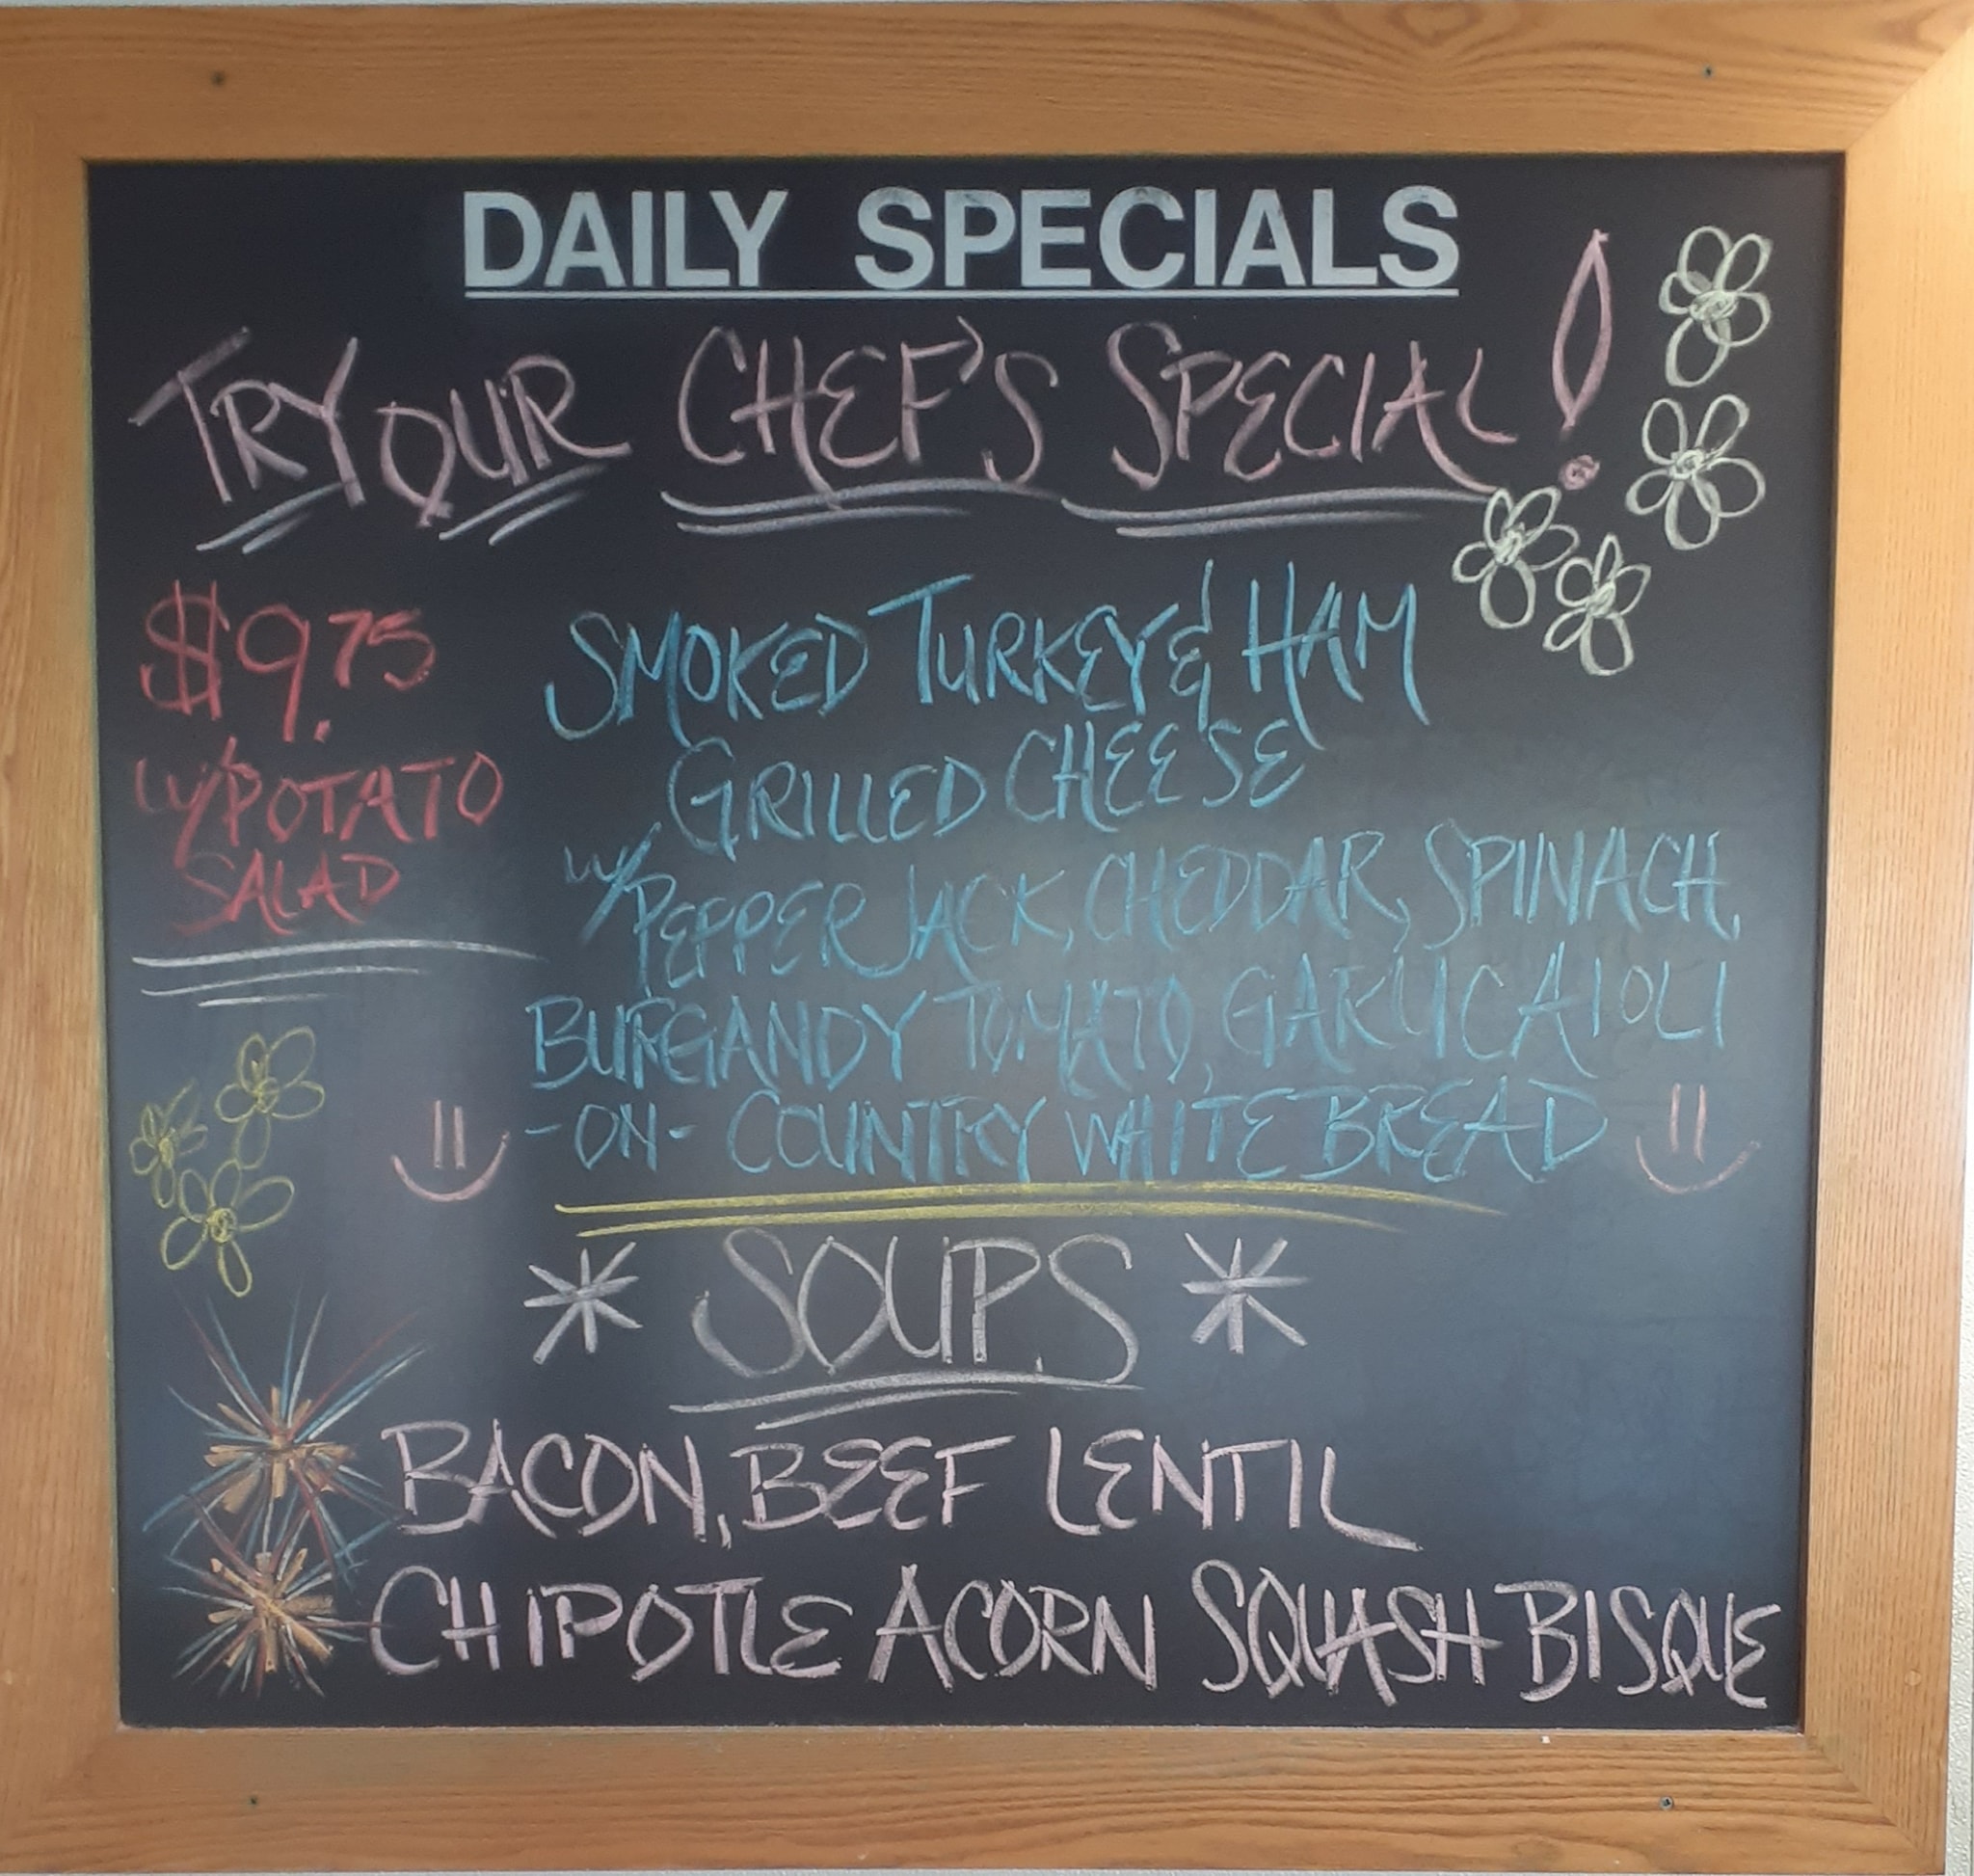 DAILY SPECIALS
TRY OUR CHEF'S SPECIAL!
$9.75
W/POTATO
SALAD
SMOKED TURKEY & HAM
GRILLED CHEESE
W/PEPPER JACK, CHEDDAR, SPINACH,
BURGANDY TOMATO, GARLIC AIOLI
-ON- COUNTRY WHITE BREAD
* SOUPS *
BACON, BEEF LENTIL
CHIPOTLE ACORN SQUASH BISQUE